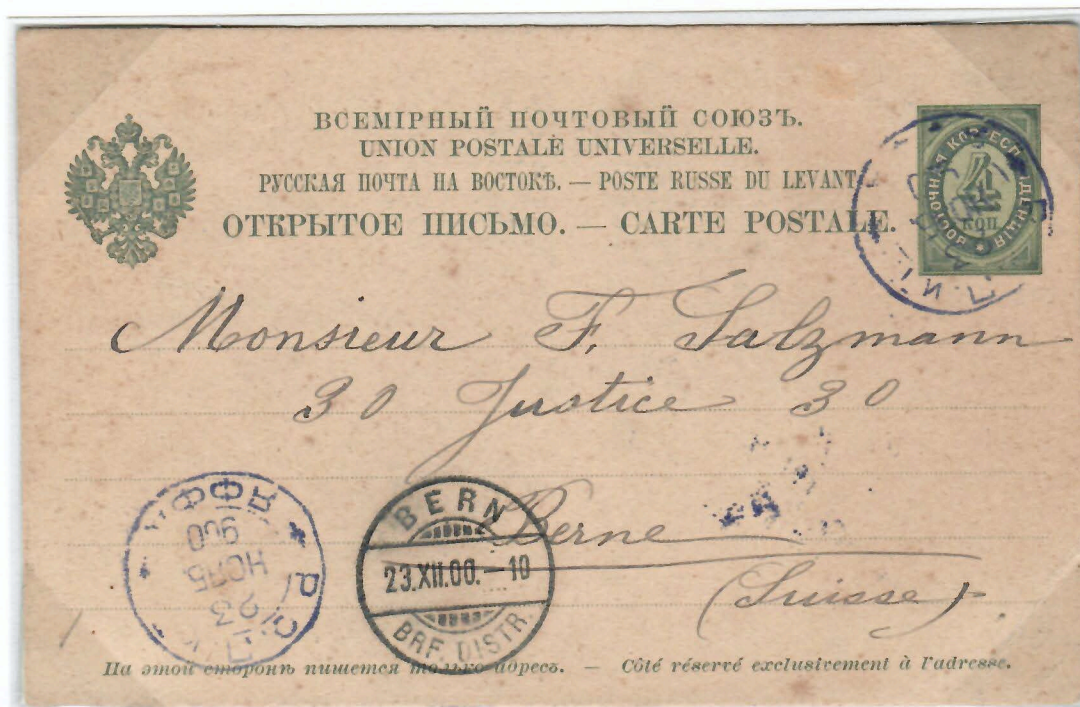 ВСЕМІРНЫЙ ПОЧТОВЫЙ СОЮЗЪ.
UNION POSTALE UNIVERSELLE.
РУССКАЯ ПОЧТА НА ВОСТОКѢ. — POSTE RUSSE DU LEVANT.
ОТКРЫТОЕ ПИСЬМО. — CARTE POSTALE.
ВОСТОЧНАЯ КОРЕСПОНДЕНЦІЯ
4
КОП.
Monsieur F. Salzmann
30 Justice 30
Berne
(Suisse)
ЯФФА
900
НОЯБ
23
BERN
23.XII.00.—10
BRF. DISTR.
На этой сторонѣ пишется только адресъ. — Côté réservé exclusivement à l'adresse.